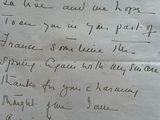 La Line and we hope
To see you in your part of
France sometime this
Spring. Again with my sincere
thanks for your charming
thought of me I am